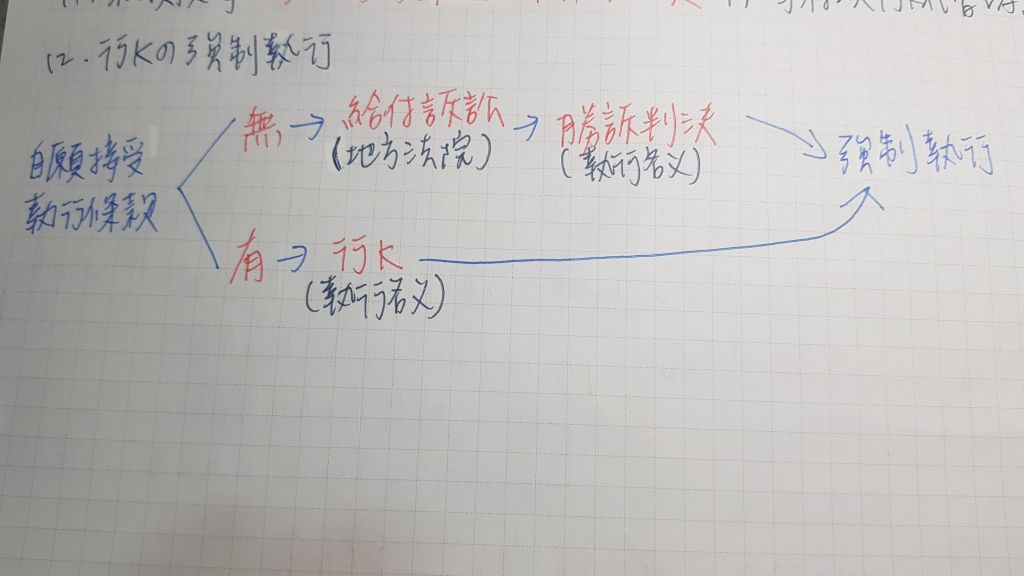 12.行Kの強制執行
無→給付訴訟→勝訴判決
(地方法院)
(執行名义)
強制執行
自願接受
執行條款
有→行K
(執行名义)